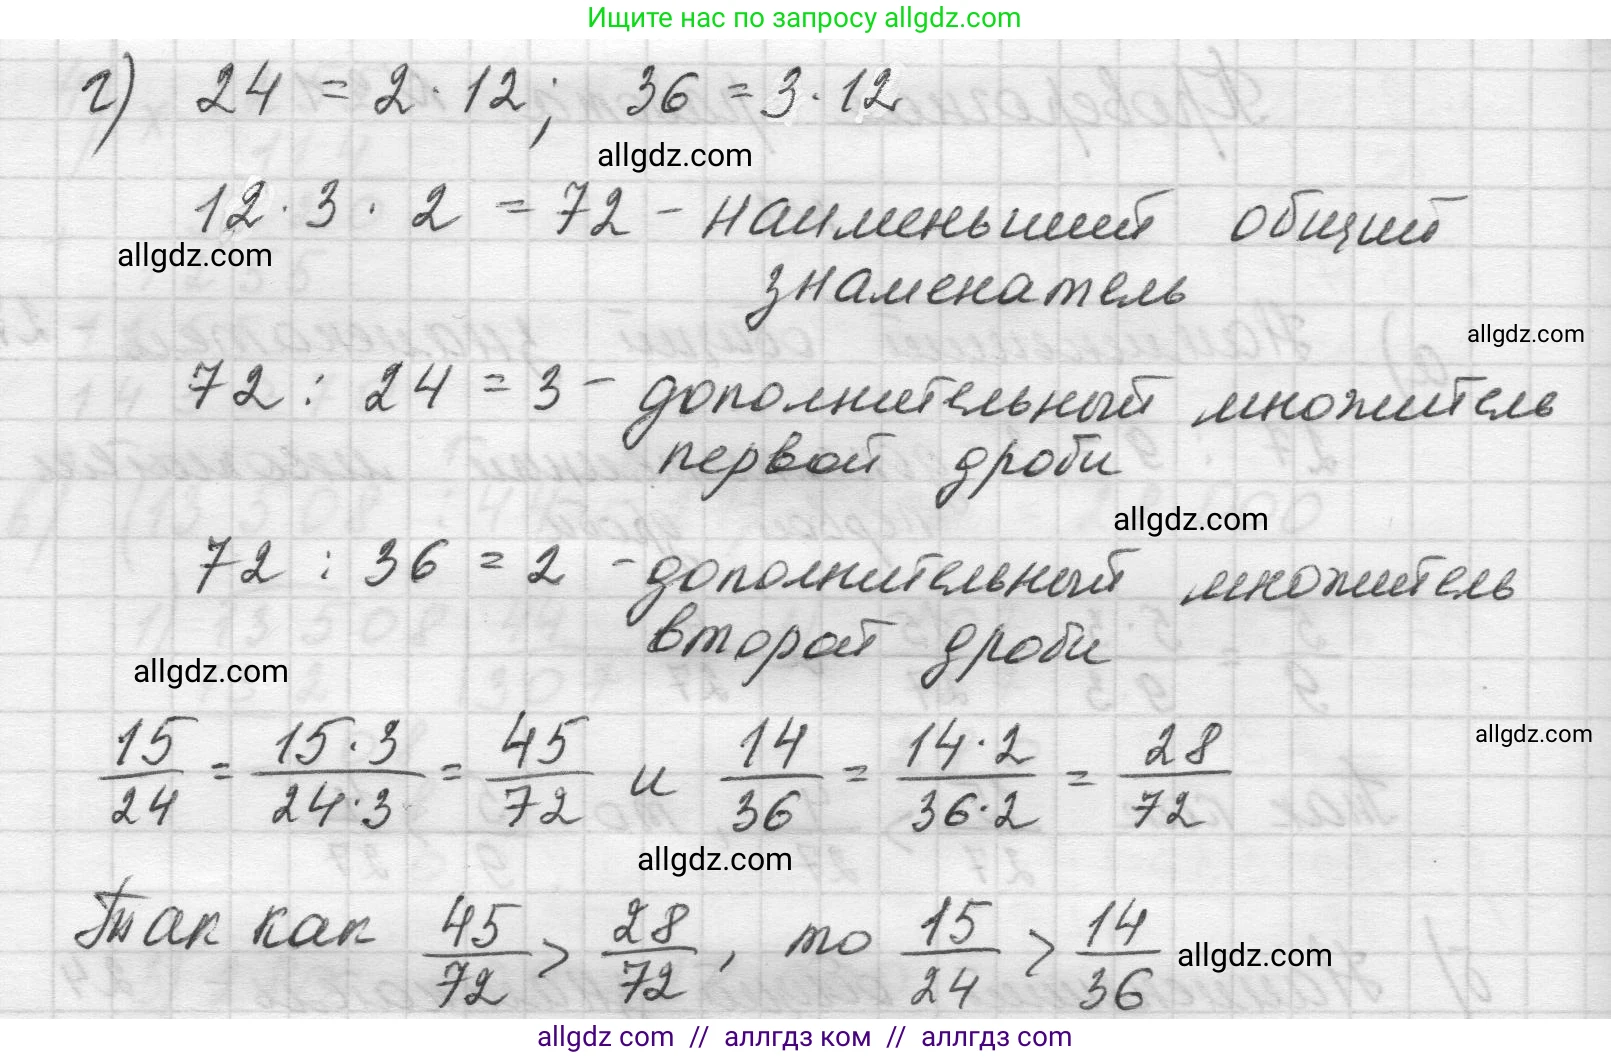 Ищите нас по запросу allgdz.com
г) 24 = 2 · 12; 36 = 3 · 12
allgdz.com
12 · 3 · 2 = 72 – наименьший общий
allgdz.com
знаменатель
allgdz.com
72 : 24 = 3 – дополнительный множитель
первой дроби
allgdz.com
72 : 36 = 2 – дополнительный множитель
второй дроби
allgdz.com
15/24 = 15·3/24·3 = 45/72 и 14/36 = 14·2/36·2 = 28/72
allgdz.com
allgdz.com
Так как 45/72 > 28/72, то 15/24 > 14/36
allgdz.com
allgdz com // аллгдз ком // аллгдз com